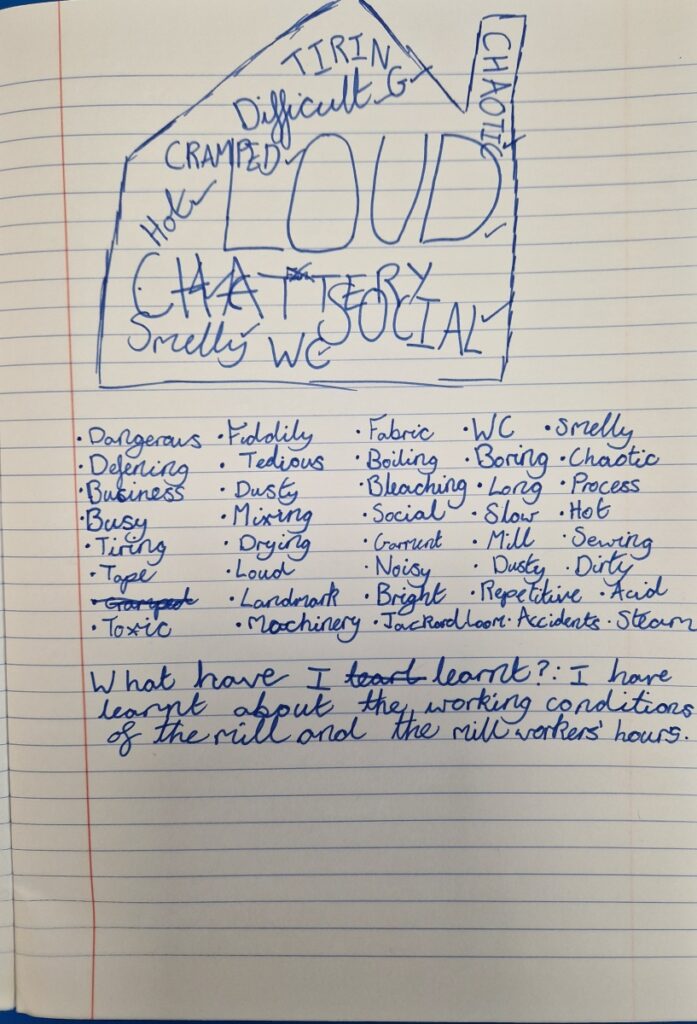 TIRING
CHAOTIC
Difficult
CRAMPED
LOUD
Hot
CHATTERY
SOCIAL
Smelly
WC
· Dangerous · Fiddily · Fabric · WC · Smelly
· Defening · Tedious · Boiling · Boring · Chaotic
· Business · Dusty · Bleaching · Long · Process
· Busy · Mixing · Social · Slow · Hot
· Tiring · Drying · Garment · Mill · Sewing
· Tape · Loud · Noisy · Dusty · Dirty
· Landmark · Bright · Repetitive · Acid
· Toxic · Machinery · Jackardloom · Accidents · Steam
What have I learnt?: I have
learnt about the working conditions
of the mill and the mill workers' hours.